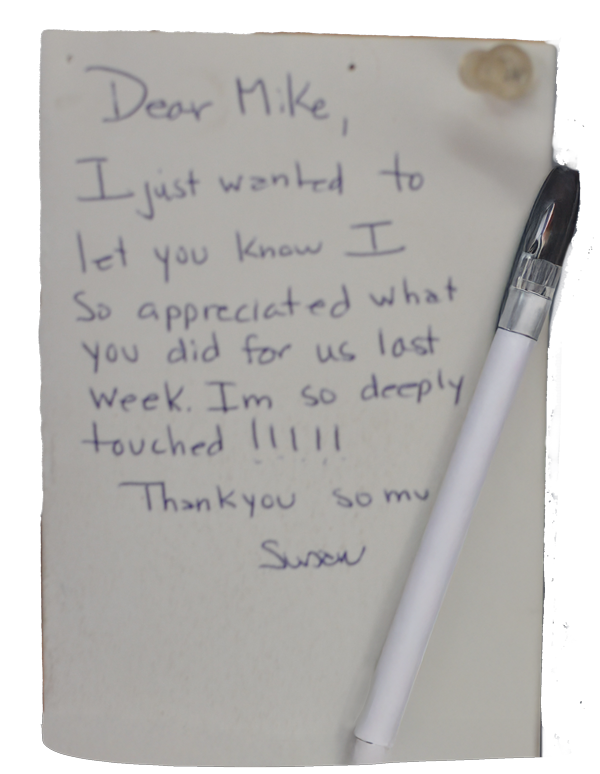 Dear Mike,
I just wanted to
let you know I
So appreciated what
you did for us last
week. Im so deeply
touched !!!!!
Thankyou so mu
Susan